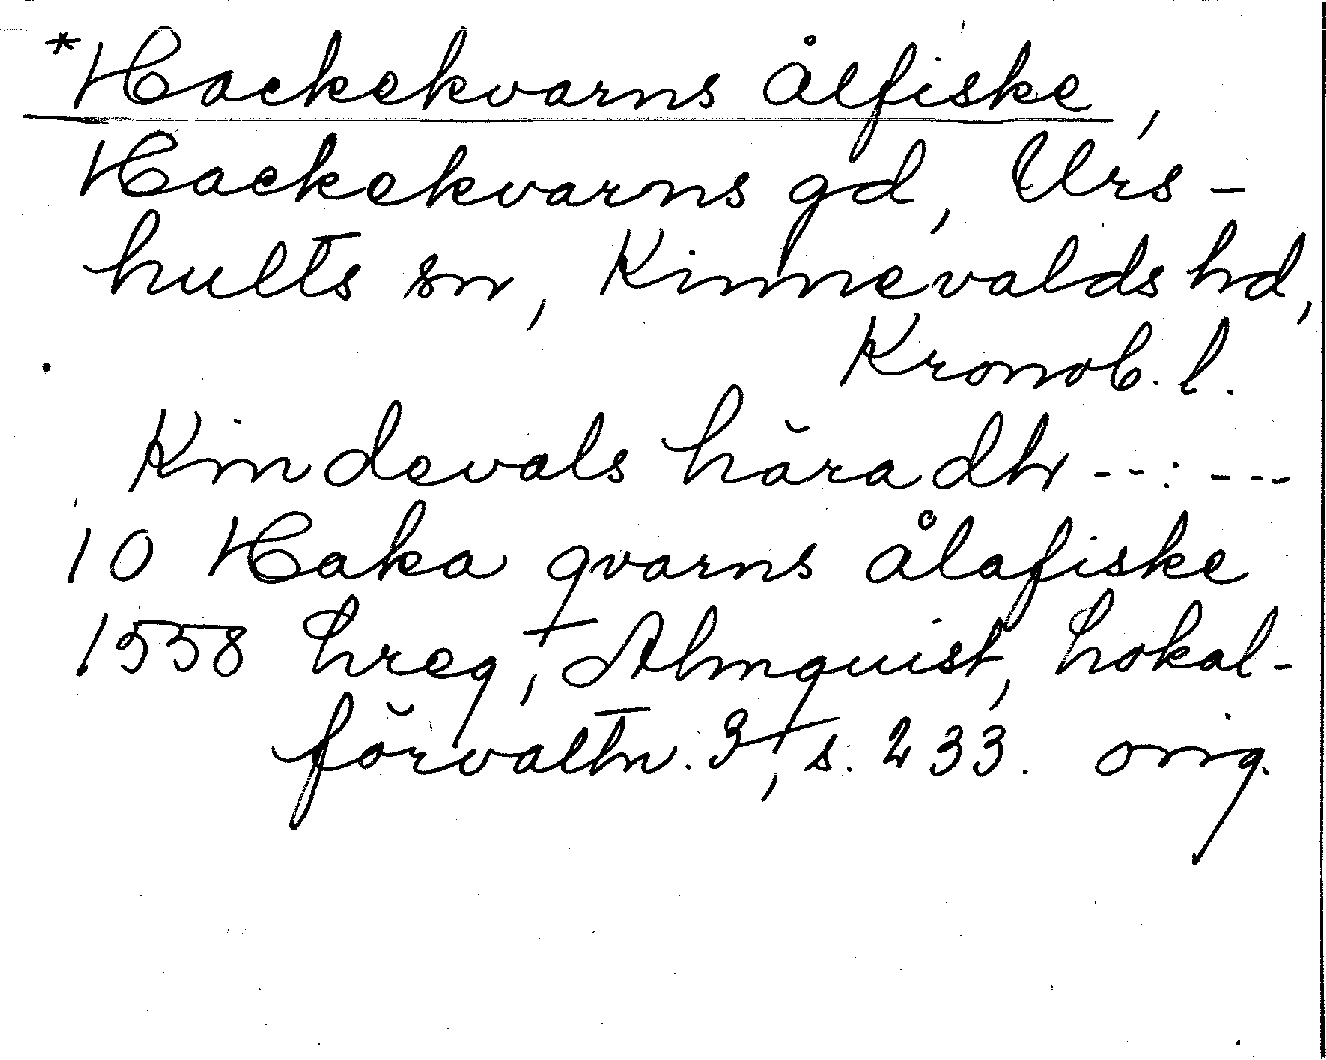 *Hackekvarns ålfiske,
Hackekvarns gd, Urs-
hults sn, Kinnevalds hd,
Kronob. l.
Kindevals häradh --:---
10 Haka qvarns ålafiske
1558 hreg, Almquist, Lokal-
förvaltn. I, s. 233. orig.